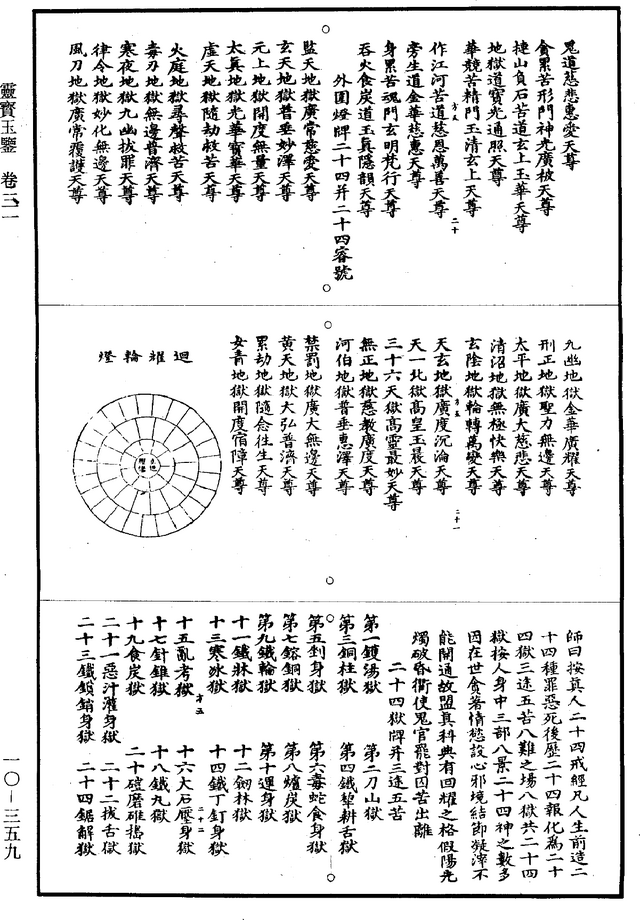 靈寶玉鑒　卷三二
一〇－三五九
鬼道慈悲惠愛天尊
食累苦形門神光廣被天尊
揵山負石苦道玄上玉華天尊
地獄道寶光通照天尊
華競苦精門玉清玄上天尊
作江河苦道慈恩萬善天尊
旁生道金華慈惠天尊
身累苦魂門玄明梵行天尊
吞火食炭道玉真隱韻天尊
外圍燈牌二十四并二十四容號
監天地獄廣常慈愛天尊
玄天地獄普垂妙澤天尊
元上地獄開度無量天尊
太真地獄光華寶華天尊
虛天地獄隨劫救苦天尊
火庭地獄尋聲救苦天尊
毒刃地獄無邊普濟天尊
寒夜地獄九幽拔罪天尊
律令地獄妙化無邊天尊
風刀地獄廣常覆護天尊
九幽地獄金華廣耀天尊
刑正地獄聖力無邊天尊
太平地獄廣大慈悲天尊
清沼地獄無極快樂天尊
玄陰地獄輪轉萬變天尊
二十一
天玄地獄廣度沉淪天尊
天一北獄高皇玉晨天尊
三十六天獄高靈最妙天尊
無正地獄慈教廣度天尊
河伯地獄普垂惠澤天尊
禁罰地獄廣大無邊天尊
黃天地獄大弘普濟天尊
累劫地獄隨念往生天尊
女青地獄開度宿障天尊
迴耀輪燈
師曰按真人二十四戒經凡人生前造二
十四種罪惡死後歷二十四報化為二十
四獄三途五苦八難之場八獄共二十四
獄按人身中三部八景二十四神之數多
因在世貪著情慾設心邪境結節凝滓不
能開通故盟真科典有回耀之格假陽光
燭破昏衢使鬼官罷對囚苦出離
二十四獄牌并三途五苦
第一鑊湯獄　第二刀山獄
第三銅柱獄　第四鐵犂耕舌獄
第五剉身獄　第六毒蛇食身獄
第七鎔銅獄　第八爐炭獄
第九鐵輪獄　第十運身獄
十一鐵牀獄　十二劒林獄
十三寒冰獄　十四鐵丁釘身獄
二十二
十五亂考獄　十六大石壓身獄
十七針錐獄　十八鐵丸獄
十九食炭獄　二十磑磨碓擣獄
二十一惡汁灌身獄　二十二拔舌獄
二十三鐵鎖銷身獄　二十四鋸解獄